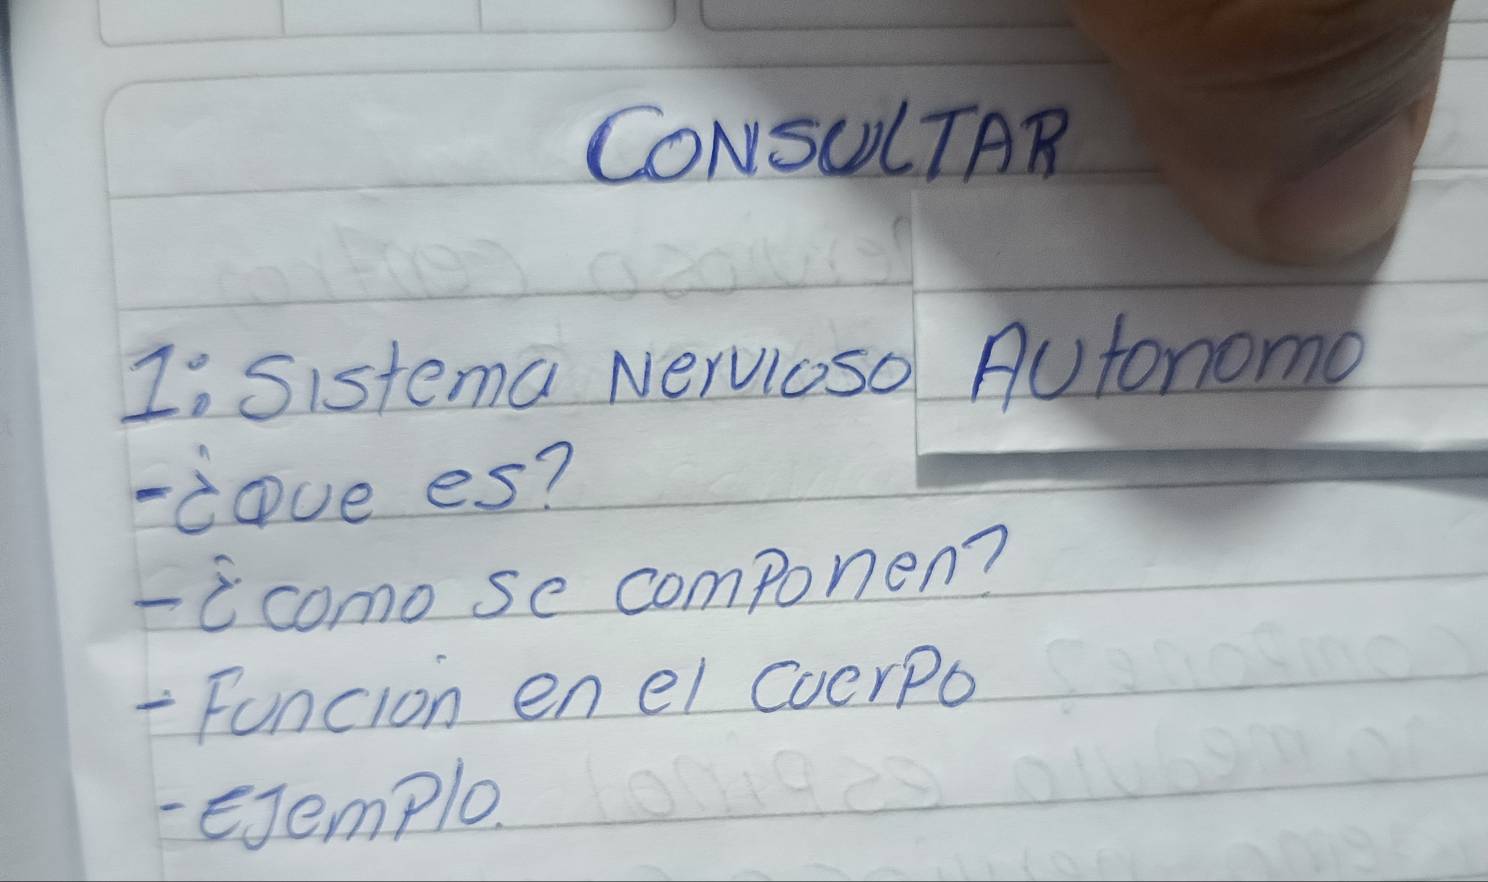 CONSULTAR
1: Sistema Nervioso Autonomo
-¿Que es?
-¿como se componen?
-Función en el cuerpo
-EJemplo.